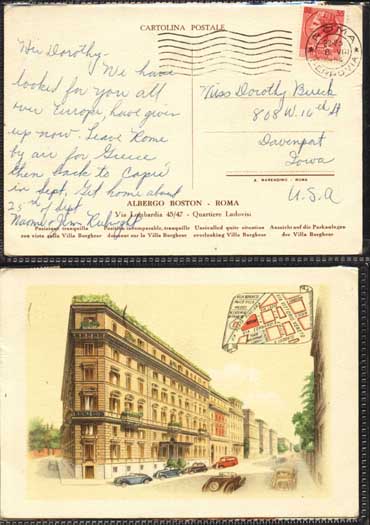 CARTOLINA POSTALE
ROMA
FERROVIA
Hi Dorothy-
We have
looked for you all
over Europe, have given
up now. Leave Rome
by air for Greece
then back to Capri
in Sept. Get home about
25th Sept
Naomi & Jim
Miss Dorothy
808 W. 10th St
Davenport
Iowa
U.S.A
A. MARENDINO - ROMA
ALBERGO BOSTON - ROMA
Via Lombardia 43/47 - Quartiere Ludovisi
Posizione tranquilla
con vista sulla Villa Borghese
Position incomparable, tranquille
donnant sur la Villa Borghese
Unrivalled quite situation
overlooking Villa Borghese
Aussicht auf die Parkanlagen
der Villa Borghese